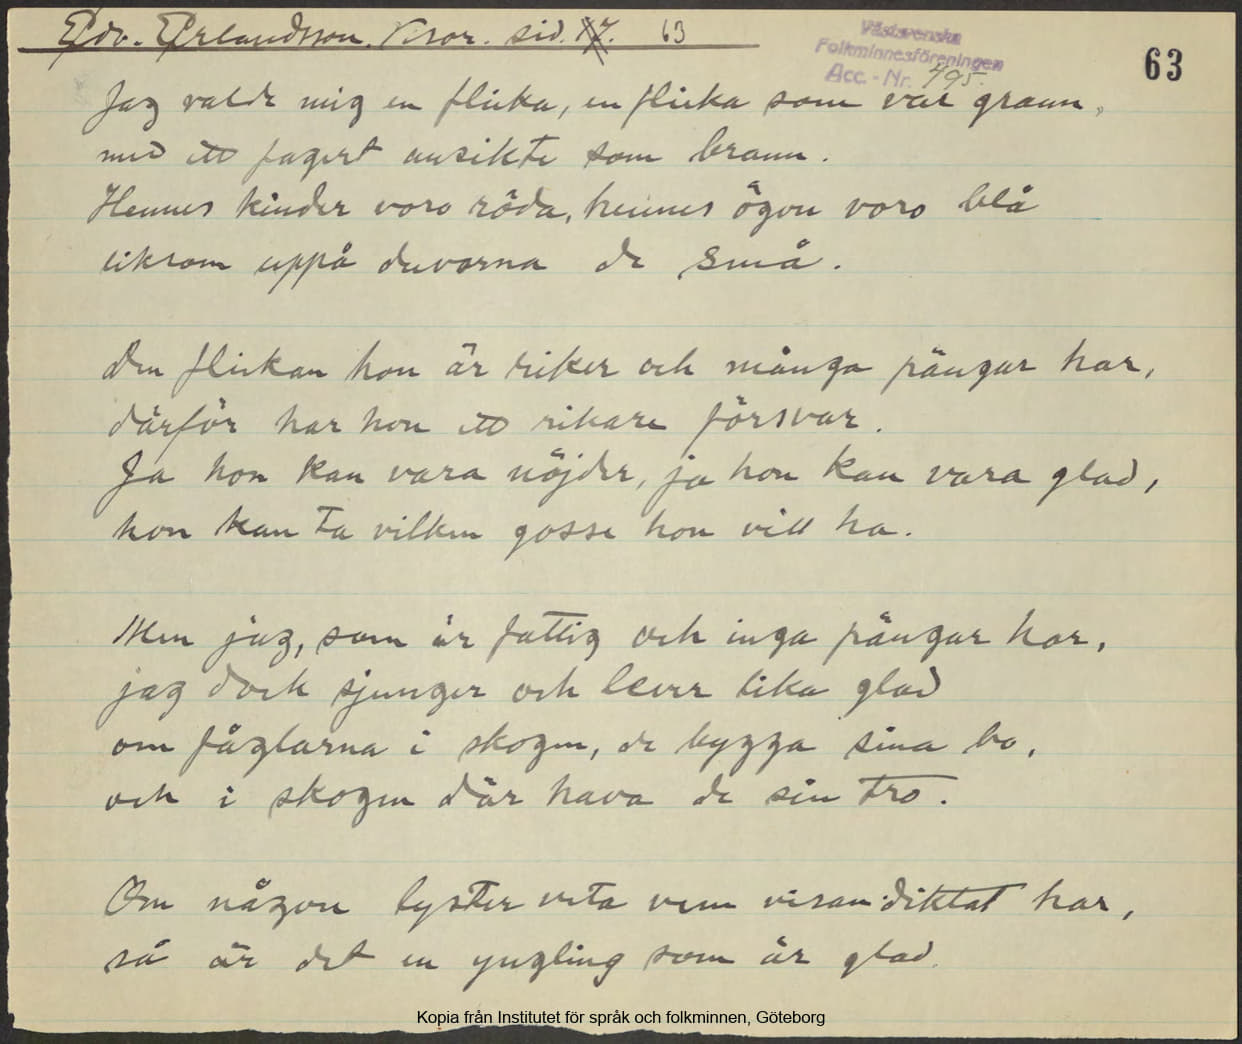 Edv. Erlandsson. Visor. sid. 17. 63
Västsvenska
Folkminnesföreningen
Acc.-Nr. 495.
63
Jag valde mig en flicka, en flicka som var grann,
med ett fagert ansikte som brann.
Hennes kinder voro röda, hennes ögon voro blå
liksom uppå duvorna de små.
Den flickan hon är riker och många pängar har,
därför har hon ett rikare försvar.
Ja hon kan vara nöjder, ja hon kan vara glad,
hon kan ta vilken gosse hon vill ha.
Men jag, som är fattig och inga pängar har,
jag dock sjunger och lever lika glad
om fåglarna i skogen, de bygga sina bo,
och i skogen där hava de sin tro.
Om någon lyster veta vem visan diktat har,
så är det en yngling som är glad.
Kopia från Institutet för språk och folkminnen, Göteborg